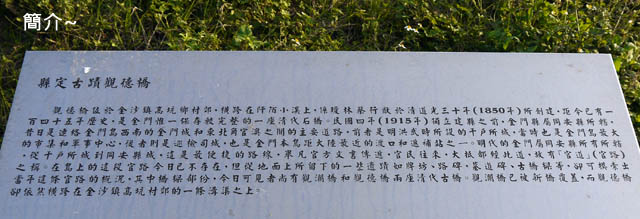 簡介~
縣定古蹟觀德橋
觀德橋位於金沙鎮高坑鄉村郊，橫跨在仟陌小溪上，係瓊林蔡行猷於清道光三十年(1850年)所創建，距今已有一
百四十五年歷史，是金門惟一保存較完整的一座清代石橋。民國四年(1915年)獨立建縣之前，金門縣屬同安縣所轄，
昔日是連絡金門島西南的金門城和東北角官澳之間的主要道路，前者是明洪武時所設的千戶所城，當時也是金門島最大
的市集和軍事中心，後者則是巡檢司城，也是金門本島距大陸最近的渡口和造補站之一。明代的金門縣屬同安縣所有所轄
，從千戶所城到同安縣城，這是最便捷的路線，舉凡官方文書傳遞，官民往來，大抵都經北道，故有「官道(官路)」
之稱。在島上的這段官路今日已不存在，但從地面上所留下的一些遺跡如牌坊、路碑、墓道碑、古橋樑等，卻可標示出
當年這條官路的概況，其中橋樑部份，今日可見者尚有觀瀾橋和觀德橋兩座清代古橋。觀瀾橋已被新橋覆蓋，而觀德橋
卻依然橫跨在金沙鎮高坑村郊的一條溝渠之上。